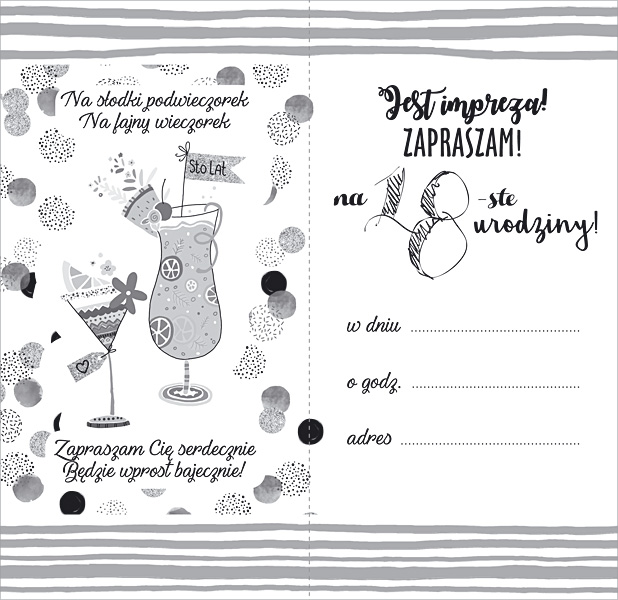 Na słodki podwieczorek
Na fajny wieczorek
Sto LAT
Zapraszam Cię serdecznie
Będzie wprost bajecznie!
Jest impreza!
ZAPRASZAM!
na 18-ste
urodziny!
w dniu ....................
o godz. ....................
adres ....................